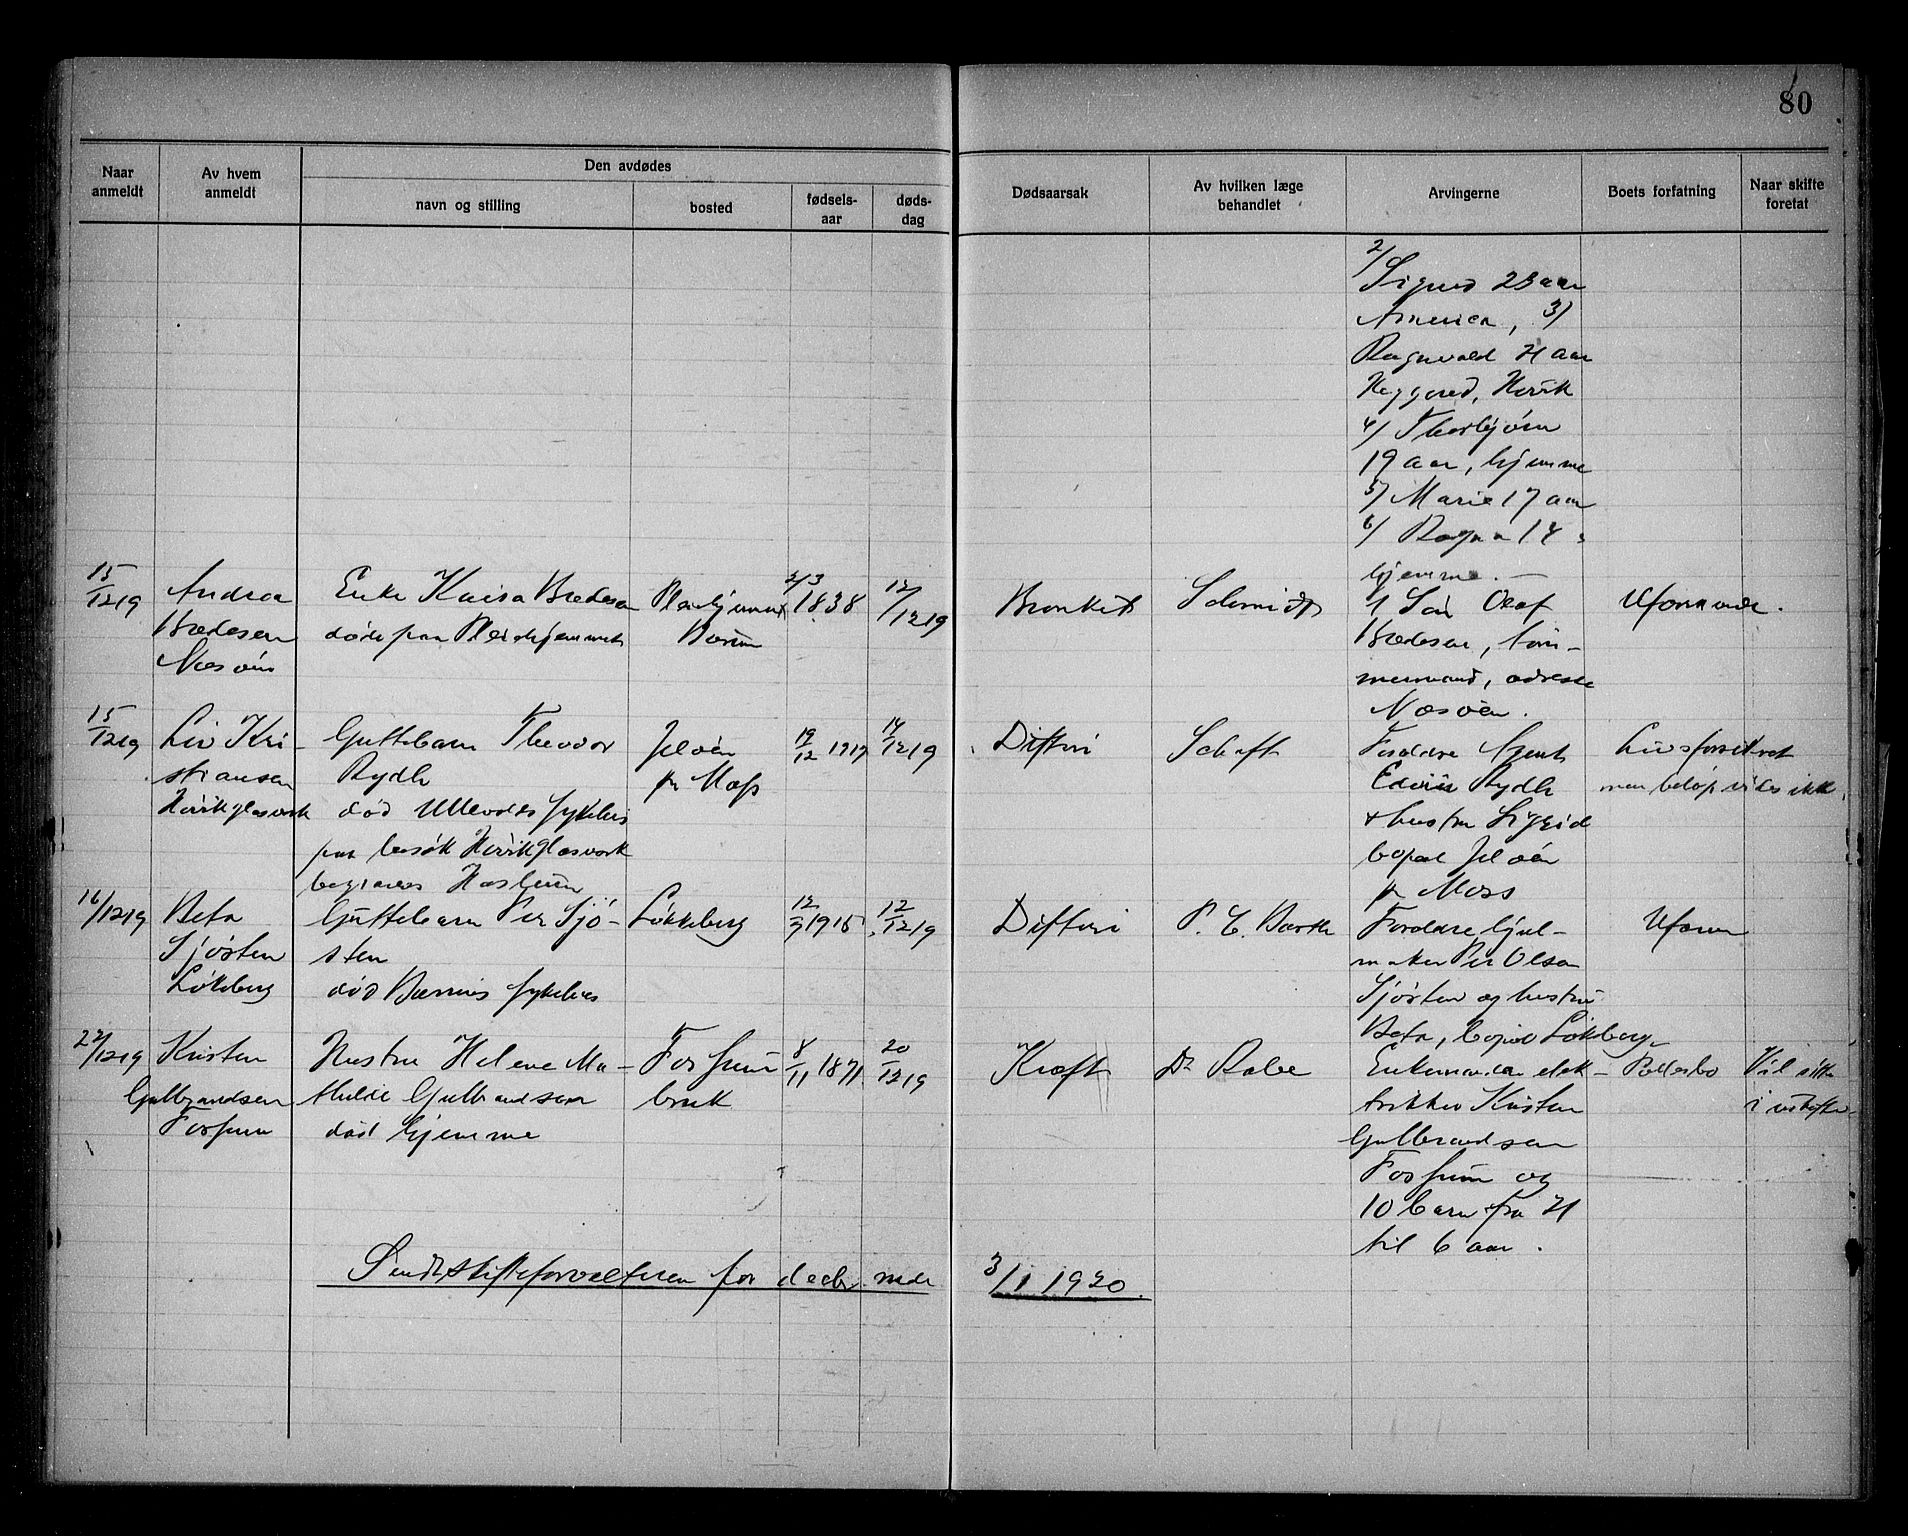 80
Naar anmeldt
Av hvem anmeldt
Den avdødes
navn og stilling
bosted
fødsels-aar
døds-dag
Dødsaarsak
Av hvilken læge behandlet
Arvingerne
Boets forfatning
Naar skifte foretat
2/
Sigurd 23 aar
America, 3/
Ragnvald 21 aar
Høvik
4/ Thorbjørn
19 aar, hjemme
5/ Marie 17 aar
6/ Ragna 14
hjemme.
15/12 19
Andrea
Bredesen
Nesøen
Enke Kaisa Bredesen
døde paa Pleiehjemmet
Pleiehjemmet
Bærum
2/3 1838
12/12 19
Bronkit
Schmidt
1 Søn Olaf
Bredesen, tøm-
mermand, adresse
Nesøen.
Uformuende.
15/12 19
Liv Kri-
stiansen
Høvikglasverk
Guttebarn Theodor
Rydh
død Ullevolds sykehus
paa besøk Høvikglasverk
begraves Haslum
Jeløen
pr Moss
19/12 1917
14/12 19
Difteri
Schøft
Foreldre Agent
Edvin Rydh
+ hustru Sigrid
bopæl Jeløen
pr Moss
Livsforsikret
men beløp vides ikke
16/12 19
Beta
Sjösten
Løkeberg
Guttebarn Per Sjö-
sten
død Bærums sykehus
Løkkeberg
12/9 1915
12/12 19
Difteri
P. C. Barth
Foreldre hjul-
maker Per Olsen
Sjösten og hustru
Beta, bopæl Løkeberg
Uform
22/12 19
Kristen
Gulbrandsen
Fossum
Hustru Helene Ma-
thilde Gulbrandsen
død hjemme
Fossum
bruk
8/11 1871
20/12 19
Kræft
Dr Rabe
Enkemanden elek-
triker Kristen
Gulbrandsen
Fossum og
10 barn fra 21
til 6 aar.
Fellesbo
Vil sitte
i uskiftet
Sendt skifteforvalteren for decbr. mdr
3/1 1920.